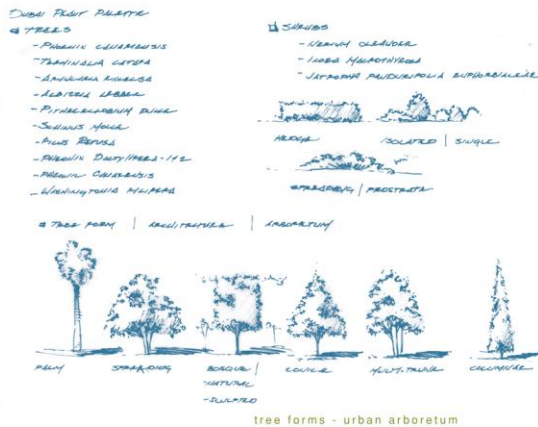 DUBAI PLANT PALETTE
TREES
- PHOENIX CANARIENSIS
- TERMINALIA CATAPA
- ALBIZZIA LEBBEK
- PITHECELLOBIUM DULCE
- SCHINUS MOLLE
- FICUS RETUSA
- PHOENIX DACTYLIFERA - 1+2
- PHOENIX CANARENSIS
- WASHINGTONIA FILIFERA
SHRUBS
- NERIUM OLEANDER
- IXORA MACROTHYRSA
- JATROPHA PANDURIFOLIA EUPHORBIACEAE
HEDGE ISOLATED | SINGLE
SPREADING | PROSTRATE
TREE FORM | ARCHITECTURE | ARBORETUM
PALM SPREADING BOSQUE | CONICAL MULTI-TRUNK COLUMNAR
- NATURAL
- SCULPTED
tree forms - urban arboretum